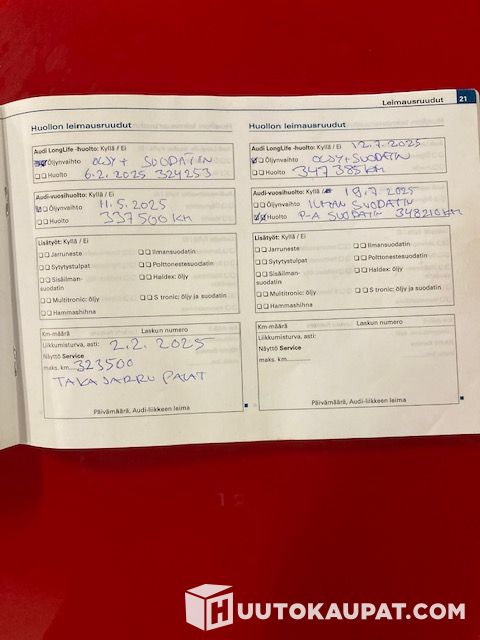 Leimausruudut 21
Huollon leimausruudut
Audi LongLife -huolto: Kyllä / Ei
Öljynvaihto ÖLJY + SUODATIN
Huolto 6.2.2025 324253
Audi-vuosihuolto: Kyllä / Ei
Öljynvaihto 11.5.2025
Huolto 337500 KM
Lisätyöt: Kyllä / Ei
Jarruneste
Ilmansuodatin
Sytytystulpat
Polttonestesuodatin
Sisäilman-
suodatin
Haldex: öljy
Multitronic: öljy
S tronic: öljy ja suodatin
Hammashihna
Km-määrä Laskun numero
Liikkumisturva, asti: 2.2.2025
Näyttö Service
maks. km 323500
TAKAJARRU PALAT
Päivämäärä, Audi-liikkeen leima
Huollon leimausruudut
Audi LongLife -huolto: Kyllä / Ei 12.7.2025
Öljynvaihto ÖLJY+SUODATIN
Huolto 347385 KM
Audi-vuosihuolto: Kyllä 19.7.2025
Öljynvaihto ILMAN SUODATIN
Huolto P-A SUODATIN 348210 KM
Lisätyöt: Kyllä / Ei
Jarruneste
Ilmansuodatin
Sytytystulpat
Polttonestesuodatin
Sisäilman-
suodatin
Haldex: öljy
Multitronic: öljy
S tronic: öljy ja suodatin
Hammashihna
Km-määrä Laskun numero
Liikkumisturva, asti:
Näyttö Service
maks. km
Päivämäärä, Audi-liikkeen leima
HUUTOKAUPAT.COM